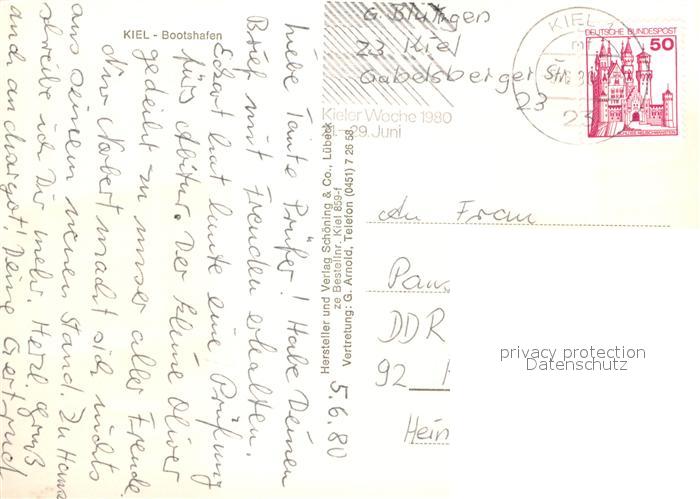 KIEL - Bootshafen
G. Blütgen
23 Kiel
Gabelsberger Str.
23
KIEL 1
23
DEUTSCHE BUNDESPOST
50
Kieler Woche 1980
29. Juni
Liebe Tante Prüfer! Habe Deinen
Brief mit Freuden erhalten.
Eckart hat heute eine Prüfung
fürs Abitur. Der kleine Oliver
gedeiht zu unser aller Freude.
Nur Norbert macht sich nichts
aus seinem neuen Stand. Zu Hause
schreibe ich Dir mehr. Herzl. Gruß
auch an Margot! Deine Gertrud
Hersteller und Verlag Schöning & Co., Lübeck
ze Bestellnr. Kiel 859-f
Vertretung: G. Arnold, Telefon (0451) 7 26 58
5.6.80
An Frau
DDR
92
privacy protection
Datenschutz